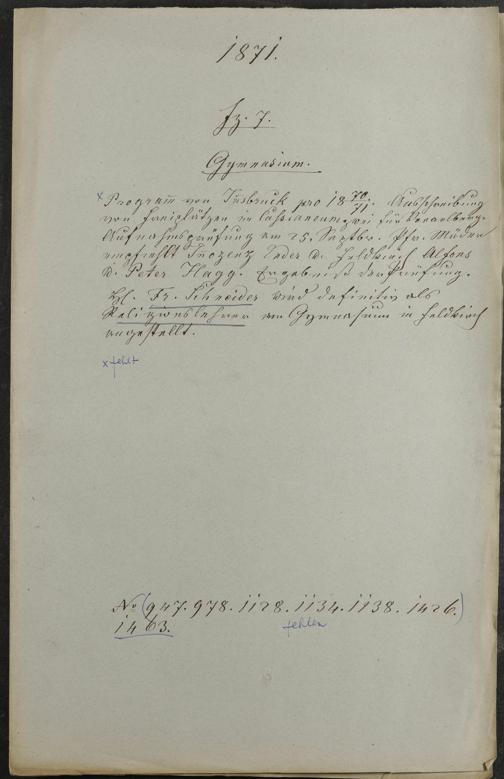 1871.
Fz. 7.
Gymnasium.
x Programm von Insbruck pro 18 70/71. Ausschreibung
von Freiplätzen in Cassianeum, zwei für Vorarlberg.
Aufnahmsprüfung am 25. Septbr. Pfr. Mäder
empfiehlt Inozenz d. Feldkirch Alfons
d. Peter Hagg. Ergebniß der Prüfung.
Hl. Fr. Schneider wird definitiv als
Religionslehrer am Gymnasium in Feldkirch
angestellt.
x fehlt
No (947. 978. 1128. 1134. 1138. 1426.)
1463.
fehlen